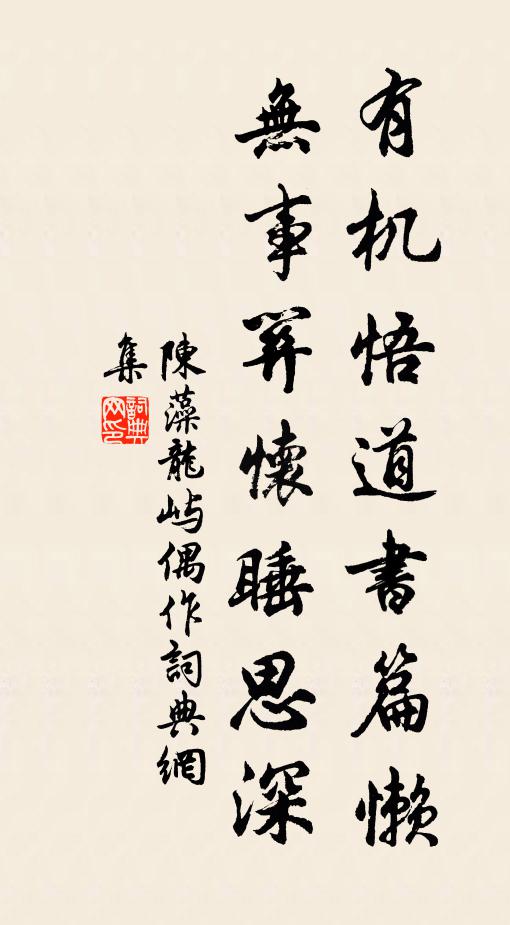 有机悟道書篇懒
無事关懷睡思深
陳藻龍屿偶作詞典網
集
詞典
网印